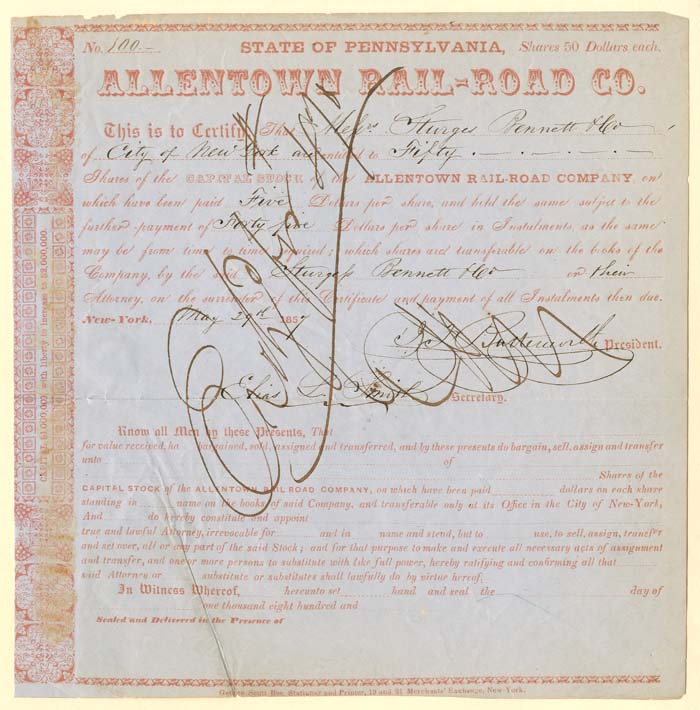 No. 100 STATE OF PENNSYLVANIA, Shares 50 Dollars each.
ALLENTOWN RAIL-ROAD CO.
This is to Certify That Messrs Sturges Bennett & Co
of City of New York are entitled to Fifty
Shares of the CAPITAL STOCK of the ALLENTOWN RAIL-ROAD COMPANY, on
which have been paid Five Dollars per share, and held the same subject to the
further payment of Forty five Dollars per share in Instalments, as the same
may be from time to time required; which shares are transferable on the books of the
Company, by the said Sturges Bennett & Co or their
Attorney, on the surrender of this Certificate and payment of all Instalments then due.
New-York, May 29th 1857
President.
Elias L. Smith Secretary.
Know all Men by these Presents, That
for value received, ha bargained, sold, assigned and transferred, and by these presents do bargain, sell, assign and transfer
unto of
Shares of the
CAPITAL STOCK of the ALLENTOWN RAIL ROAD COMPANY, on which have been paid dollars on each share
standing in name on the books of said Company, and transferable only at its Office in the City of New-York,
And do hereby constitute and appoint
true and lawful Attorney, irrevocable for and in name and stead, but to use, to sell, assign, transfer
and set over, all or any part of the said Stock; and for that purpose to make and execute all necessary acts of assignment
and transfer, and one or more persons to substitute with like full power, hereby ratifying and confirming all that
said Attorney or substitute or substitutes shall lawfully do by virtue hereof,
In Witness Whereof, hereunto set hand and seal the day of
one thousand eight hundred and
Sealed and Delivered in the Presence of
Stationer and Printer, 19 and 21 Merchants' Exchange, New-York.
CAPITAL $1,000,000, with liberty to increase to $2,000,000.